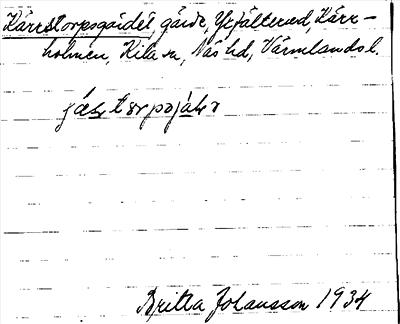 Kärrstorpsgärdet, gärde, Yxfälterud, Kärr-
holmen, Kila sn, Näs hd, Värmlands l.
Britta Johansson 1934